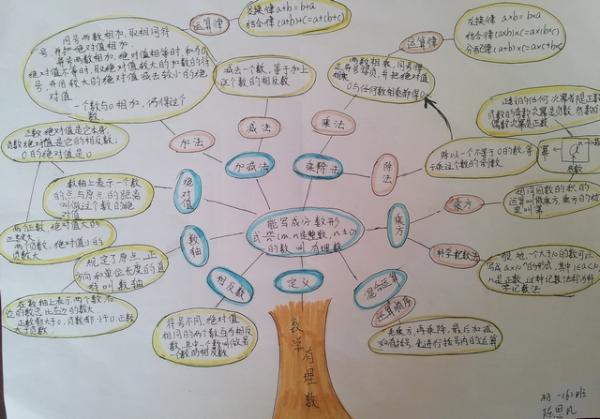 同号两数相加,取相同符
号,并把绝对值相加.
异号两数相加,绝对值相等时,和为0,
绝对值不等时,取绝对值较大的加数的符
号,并用较大的绝对值减去较小的绝
对值.
一个数与0相加,仍得这个
数.
运算律
交换律 a+b=b+a
结合律 (a+b)+c=a+(b+c)
减去一个数,等于加上
这个数的相反数
加法
减法
加减法
两数相乘,同号得
正,异号得负,并把绝对值
相乘
0与任何数相乘都得0
运算律
交换律 a×b=b×a
结合律 (a×b)×c=a×(b×c)
乘法
除法
乘除法
除以一个不等于0的数,等
于乘这个数的倒数
正数的任何次幂都是正数
幂
乘方
乘方
相同因数的积的
运算叫做乘方,乘方的结
果叫幂
科学记数法
一般地,一个大于10的数可以
写成a×10ⁿ的形式,其中1≤a<10
n是正整数,这种记数法称为科
学记数法
正数绝对值是它本身,
负数绝对值是它的相反数,
0的绝对值是0
绝对值
数轴上表示一个数
的点与原点的距离
叫做这个数的绝
对值
两个正数,绝对值大的
正数大
两个负数,绝对值小的
负数大
数轴
规定了原点,正
方向和单位长度的直
线叫数轴
在数轴上表示两个数,右
边的数总比左边的数大
正数都大于0,负数都小于0,正数
大于负数
相反数
符号不同,绝对值
相同的两个数互为相反
数,其中一个数叫做另
一个数的相反数
能写成分数形
式 m/n (m.n是整数,n≠0)
的数叫有理数
定义
混合运算
运算顺序
先乘方,再乘除,最后加减,
如有括号,先进行括号内的运算
数学有理数
初一(6)班